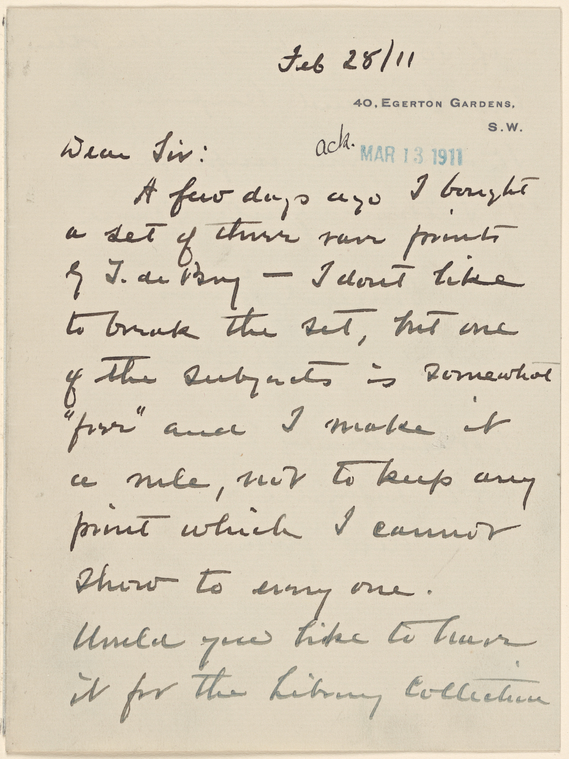 Feb 28/11
40, EGERTON GARDENS,
S.W.
ack. MAR 13 1911
Dear Sir:
A few days ago I bought
a set of three rare prints
by T. de Bry — I dont like
to break the set, but one
of the subjects is somewhat
"free" and I make it
a rule, not to keep any
print which I cannot
show to every one.
Would you like to have
it for the Library Collection